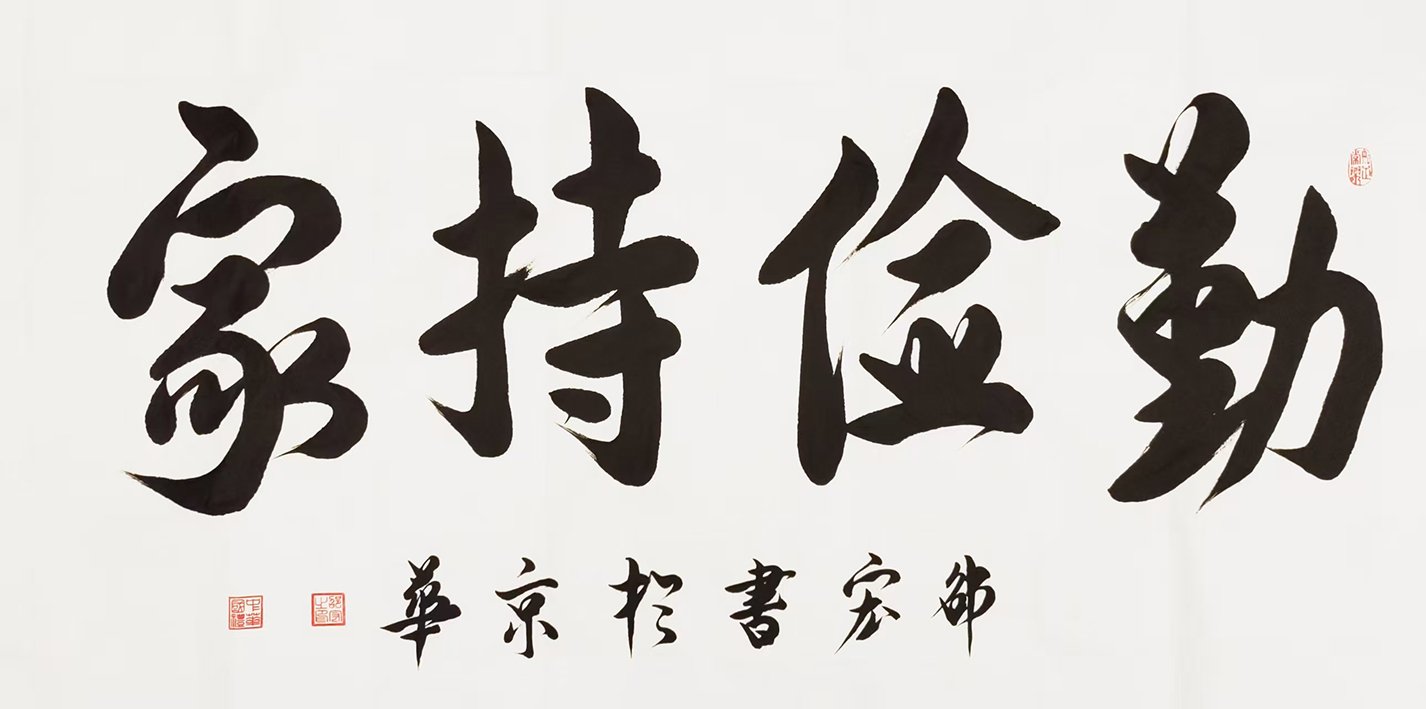 勤儉持家
邵宏書於京華